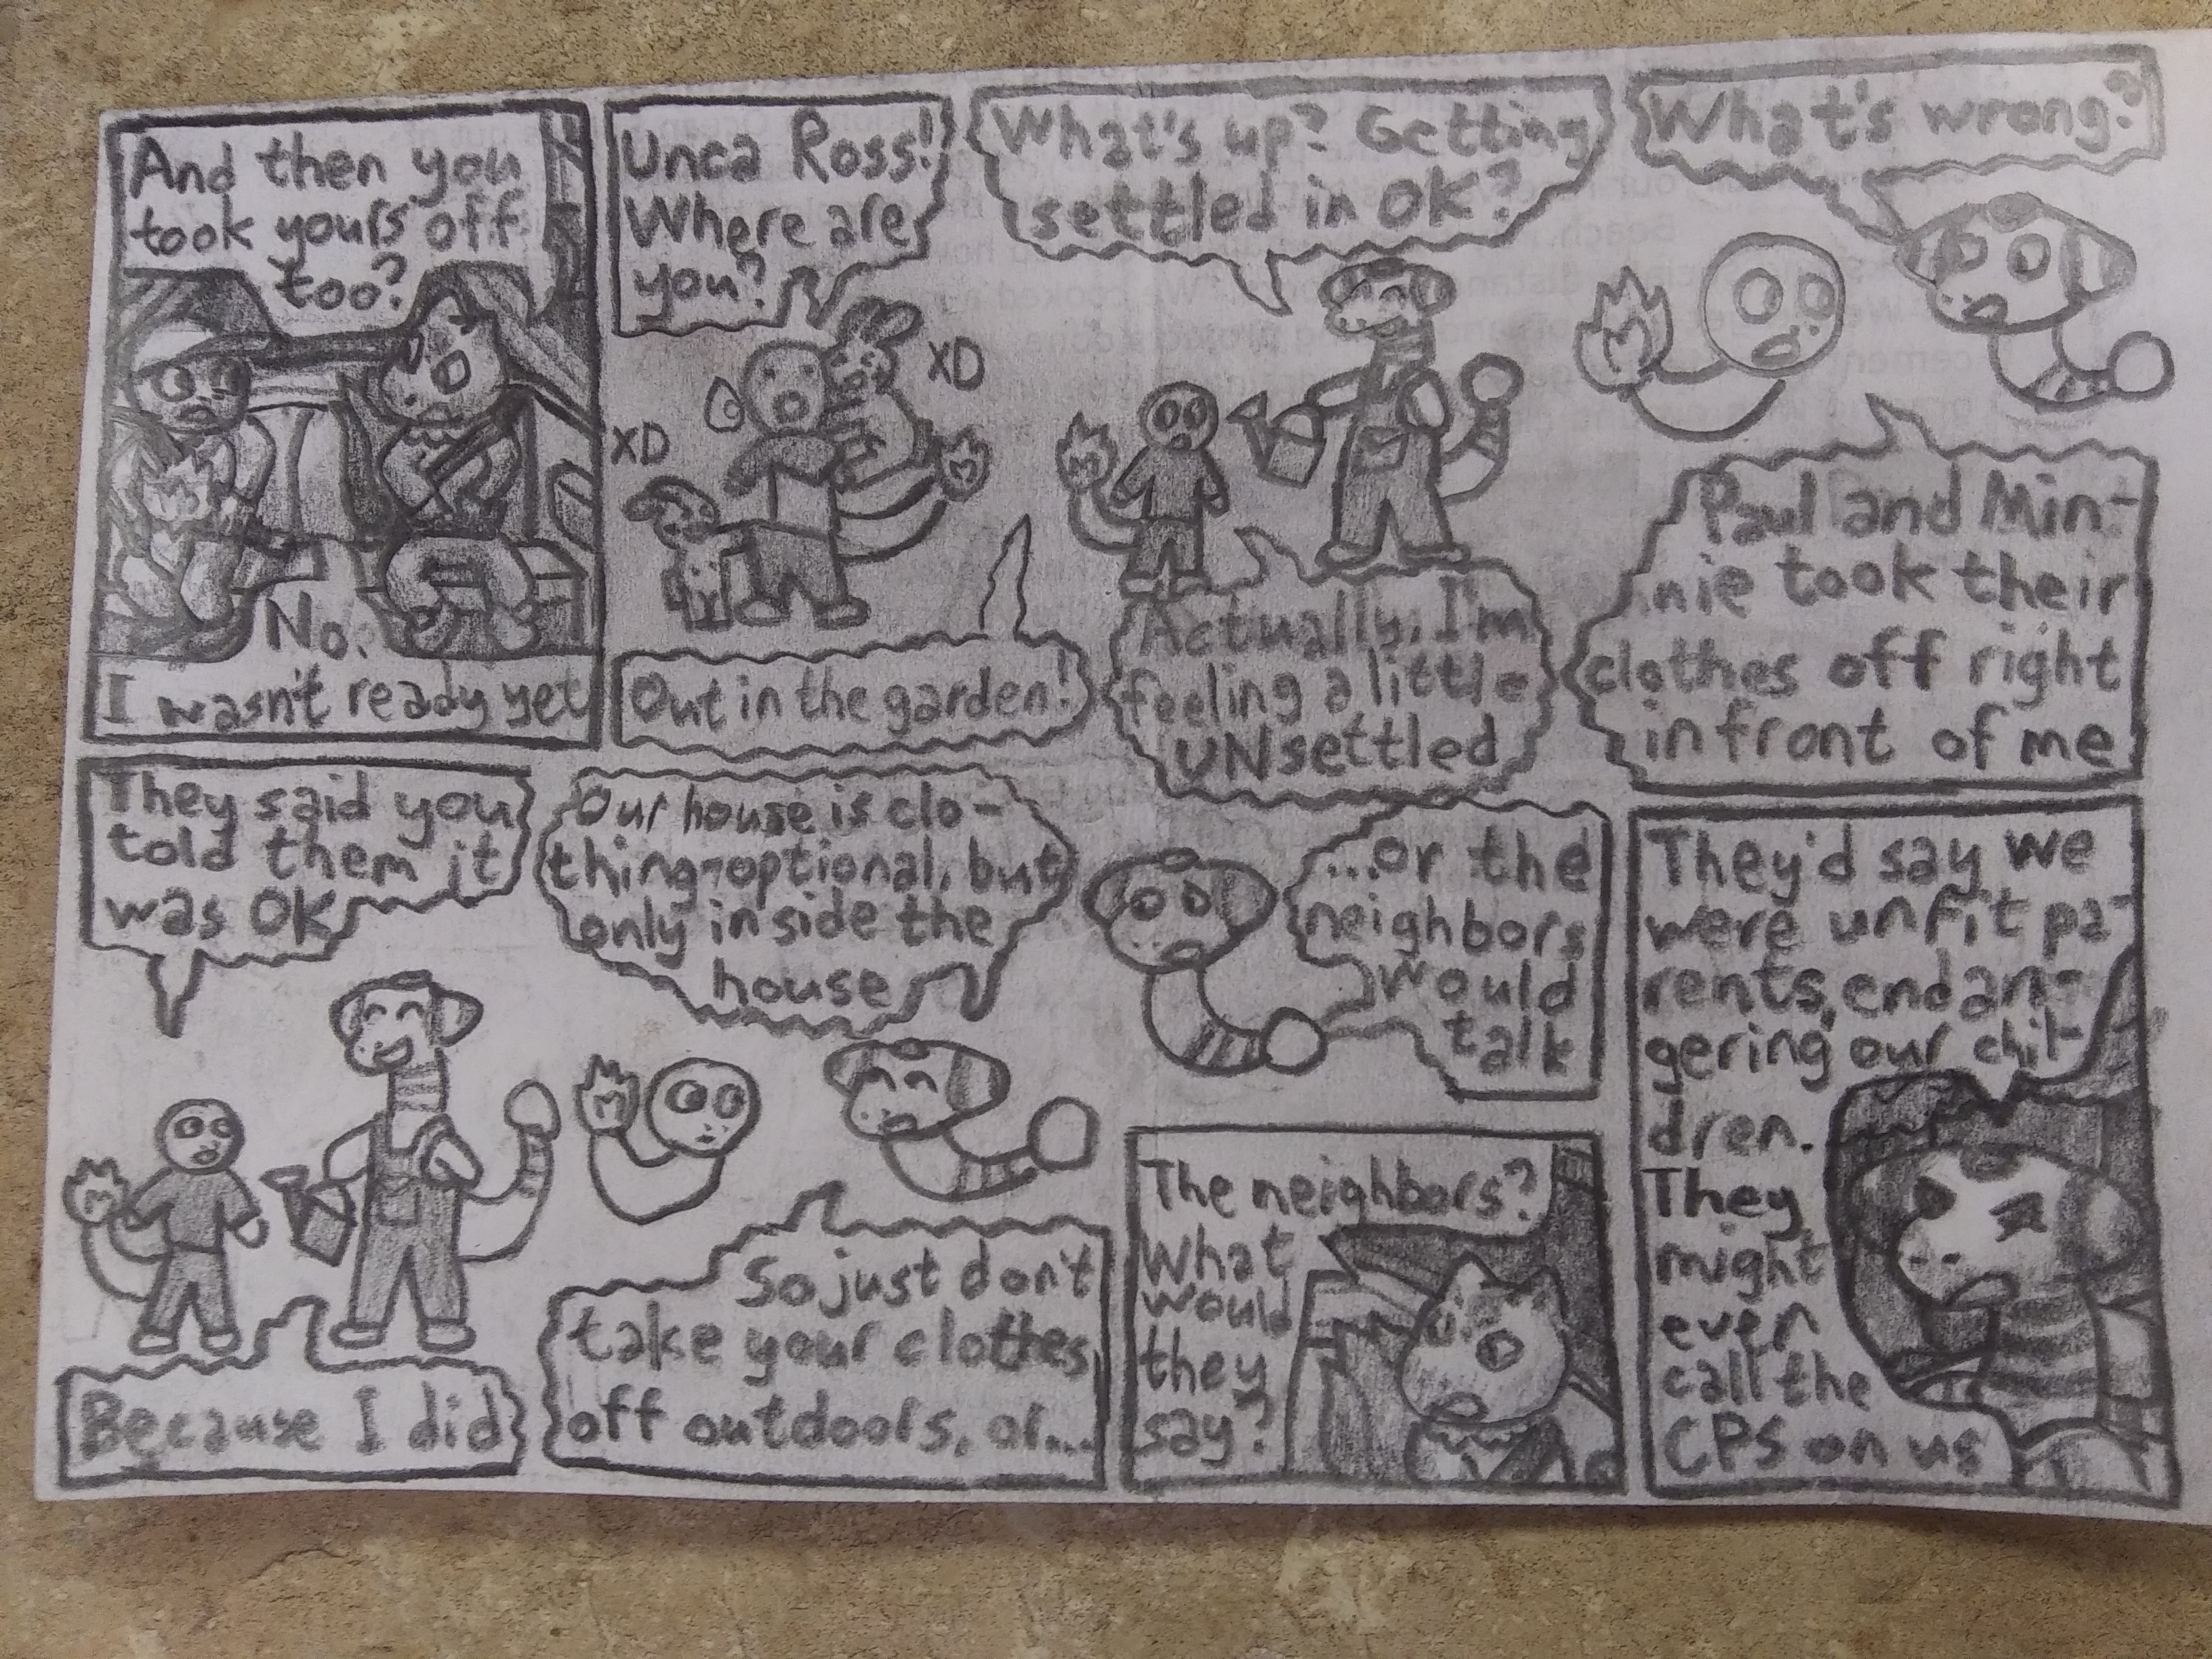 And then you
took yours off
too?
No.
I wasn't ready yet
Unca Ross!
Where are
you?
XD
XD
Out in the garden!
What's up? Getting
settled in OK?
Actually, I'm
feeling a little
UNsettled
What's wrong?
Paul and Min-
nie took their
clothes off right
in front of me
They said you
told them it
was OK
Because I did
Our house is clo-
thing-optional, but
only inside the
house
So just don't
take your clothes
off outdoors, or...
...or the
neighbors
would
talk
The neighbors?
What
would
they
say?
They'd say we
were unfit pa-
rents, endan-
gering our chil-
dren.
They
might
even
call the
CPS on us